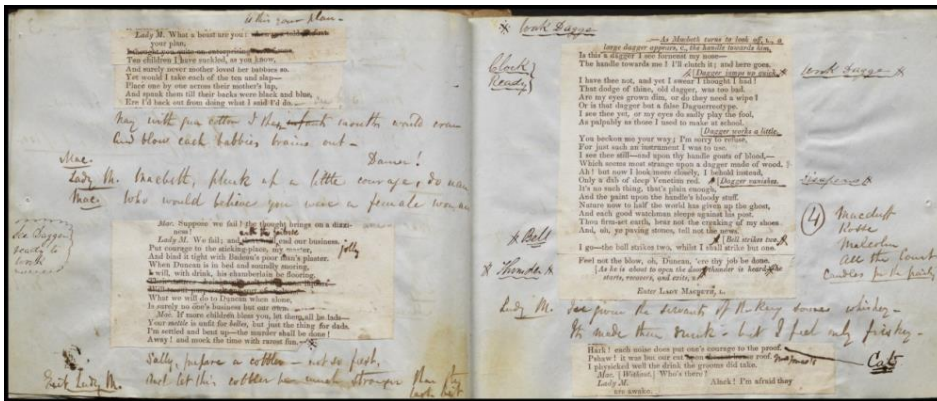 is this your plan—
Lady M. What a beast are you!
your plan,
I thought you quite an enterprising
Ten children I have suckled, as you know,
And surely never mother loved her babbies so.
Yet would I take each of the ten and slap—
Place one by one across their mother's lap,
And spank them till their backs were black and blue,
Ere I'd back out from doing what I said I'd do.
Nay with gun cotton I their mouths would cram
And blow each babbies brains out—
Mac. Damn!
Lady M. Macbeth, pluck up a little courage, do, man
Mac. Who would believes you were a female woman
See Dagger
ready to
work
Mac. Suppose we fail! the thought brings on a dizzi-
ness!
Lady M. We fail; and end our business.
Put courage to the sticking-place, my
jolly
And bind it tight with Badeau's poor man's plaster.
When Duncan is in bed and soundly snoring,
I will, with drink, his chamberlain be flooring.
What we will do to Duncan when alone,
Is surely no one's business but our own.
Mac. If more children bless you, let them all be lads—
Your mettle is unfit for belles, but just the thing for dads.
I'm settled and bent up—the murder shall be done!
Away! and mock the time with rarest fun.
Sally, prepare a cobbler— not so fast,
Exit Lady M. And let this cobbler be much stronger than the
last
* Work Dagger
—As Macbeth turns to look off, L., a
large dagger appears, C., the handle towards him.
Clock
Ready
Is this a dagger I see forenenst my nose—
The handle towards me? I'll clutch it; and here goes.
[Dagger jumps up quick. *
Work Dagger *
I have thee not, and yet I swear I thought I had!
That dodge of thine, old dagger, was too bad.
Are my eyes grown dim, or do they need a wipe?
Or is that dagger but a false Daguerreotype.
I see thee yet, or my eyes do sadly play the fool,
As palpably as those I used to make at school.
[Dagger works a little.
You beckon me your way; I'm sorry to refuse,
For just such an instrument I was to use.
I see thee still—and upon thy handle gouts of blood,—
Which seems most strange upon a dagger made of wood.
Ah! but now I look more closely, I behold instead,
Only a dab of deep Venetian red. [Dagger vanishes.
Disappears *
It's no such thing, that's plain enough,
And the paint upon the handle's bloody stuff.
Nature now to half the world has given up the ghost,
And each good watchman sleeps against his post.
Thou firm-set earth, hear not the creaking of my shoes
And, oh, ye paving stones, tell not the news.
(4) Macduff
Rosse
Malcolm
All the Court
candles for the party
* Bell
[Bell strikes two. *
I go—the bell strikes two, whilst I shall strike but one.
Feel not the blow, oh, Duncan, 'ere thy job be done.
* Thunder *
[As he is about to exit the door thunder is heard—he
starts, recovers, and exits,
Enter LADY MACBETH, L.
Lady M. I've given the servants of the King some whiskey—
It's made them drunk— but I feel only friskey
Hark! each noise does put one's courage to the proof.
Pshaw! it was but our cat upon roof.
Cats
I physicked well the drink the grooms did take.
Mac. [Without.] Who's there?
Lady M. Alack! I'm afraid they
are awake.